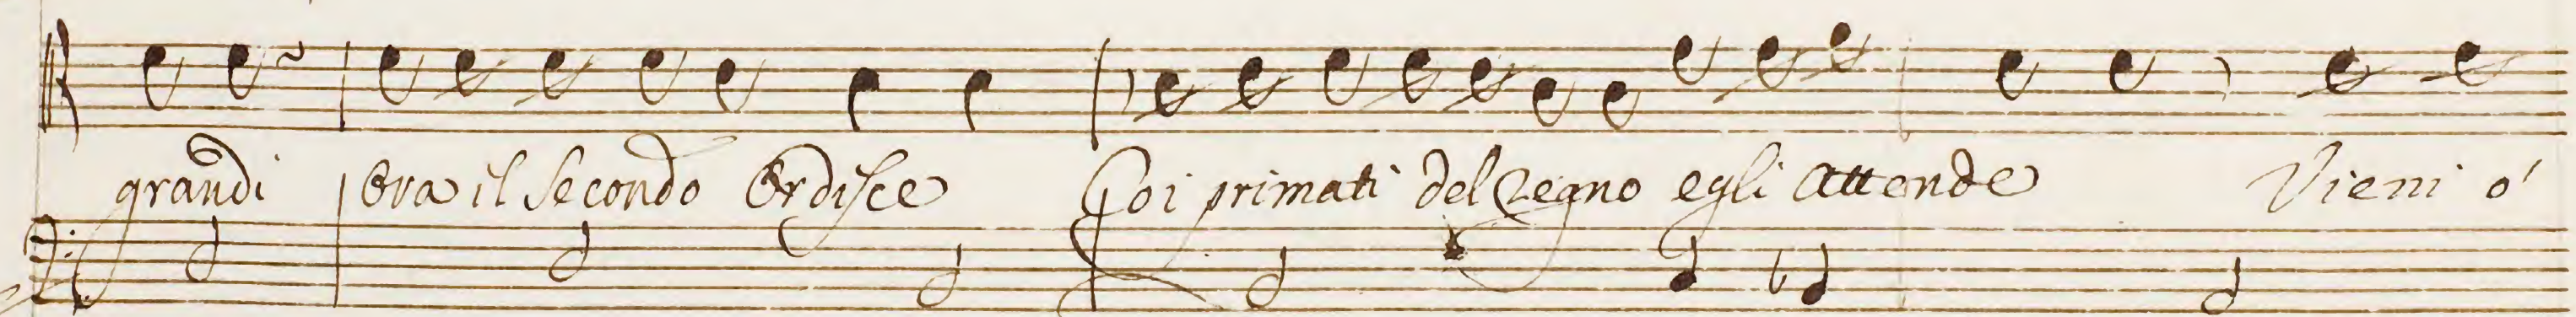 grandi Ora il secondo Ordisce Coi primati del Regno egli Attende Vieni o'